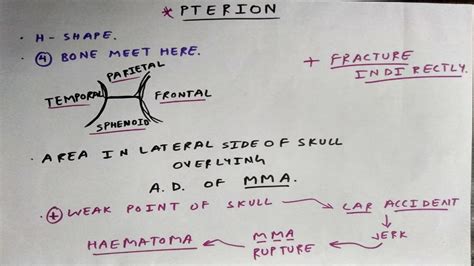 * PTERION
• H-SHAPE.
• ④ BONE MEET HERE.
PARIETAL
TEMPORAL FRONTAL
SPHENOID
+ FRACTURE
INDIRECTLY.
• AREA IN LATERAL SIDE OF SKULL
OVERLYING
A.D. OF MMA.
• + WEAK POINT OF SKULL → CAR ACCIDENT
JERK
MMA
RUPTURE
HAEMATOMA